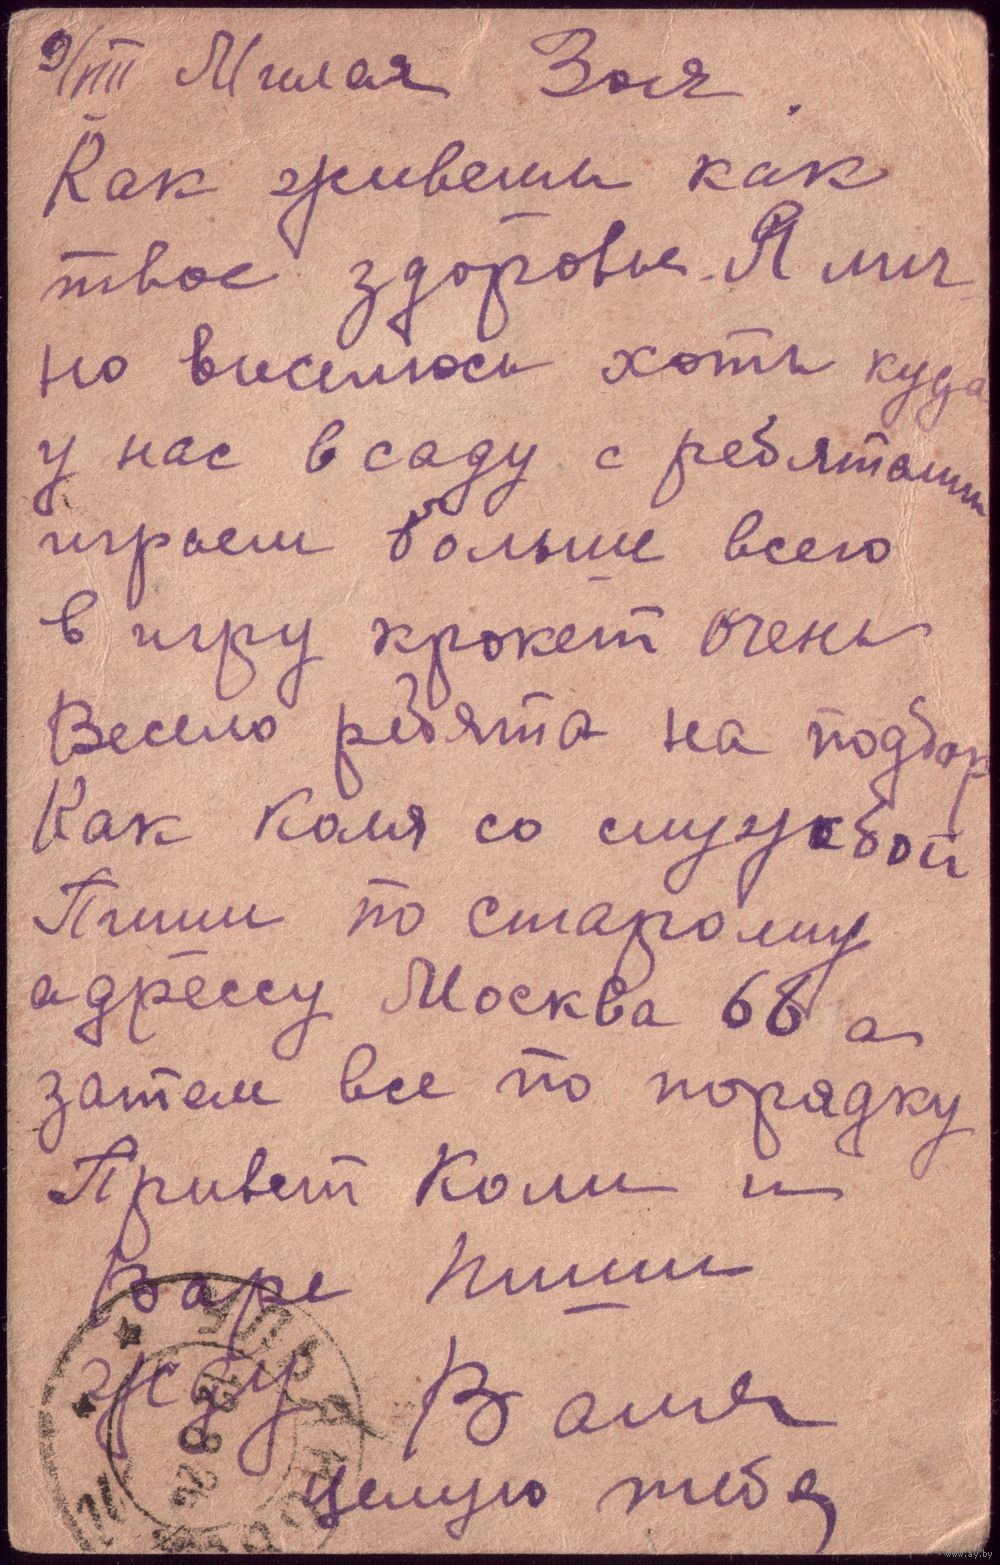 9/VIII Милая Зоя.
Как живешь как
твое здоровье. Я лич-
но виселюсь хоть куда
у нас в саду с ребятами
играем больше всего
в игру крокет очень
весело ребята на подбор
Как Коля со службой
Пиши по старому
адрессу Москва 66 а
затем все по порядку
Привет Коли и
Варе пиши
жду Валя
целую тебя
УЛЬЯНОВСК
12 8 26
www.ay.by